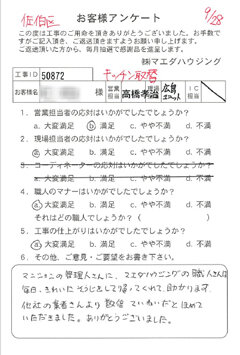 佐伯区
お客様アンケート
9/28
この度は工事のご用命を頂きありがとうございました。お手数で
すがご記入頂き、ご返送頂きますようお願い申し上げます。
ご返送頂いた方から、毎月抽選で感謝品を進呈します。
㈱マエダハウジング
キッチン取替
工事ID 50872
お客様名
営業担当 高橋孝治
工事担当
IC担当
1. 営業担当者の応対はいかがでしたでしょうか?
ⓐ大変満足 b.満足 c.やや不満 d.不満
2. 現場担当者の応対はいかがでしたでしょうか?
a.大変満足 ⓑ満足 c.やや不満 d.不満
3. コーディネーターの応対はいかがでしたでしょうか?
a.大変満足 b.満足 c.やや不満 d.不満
4. 職人のマナーはいかがでしたでしょうか?
ⓐ大変満足 b.満足 c.やや不満 d.不満
それはどの職人でしょうか?( )
5. 工事の仕上がりはいかがでしたでしょうか?
ⓐ大変満足 b.満足 c.やや不満 d.不満
6. その他、ご意見・ご要望をお書き下さい。
マンションの管理人さんに、マエダハウジングの職人さんは
毎日、きれいにそうじをして帰ってくれて、助かります。
他社の業者さんより数倍ていねいだとほめて
いただきました。ありがとうございました。